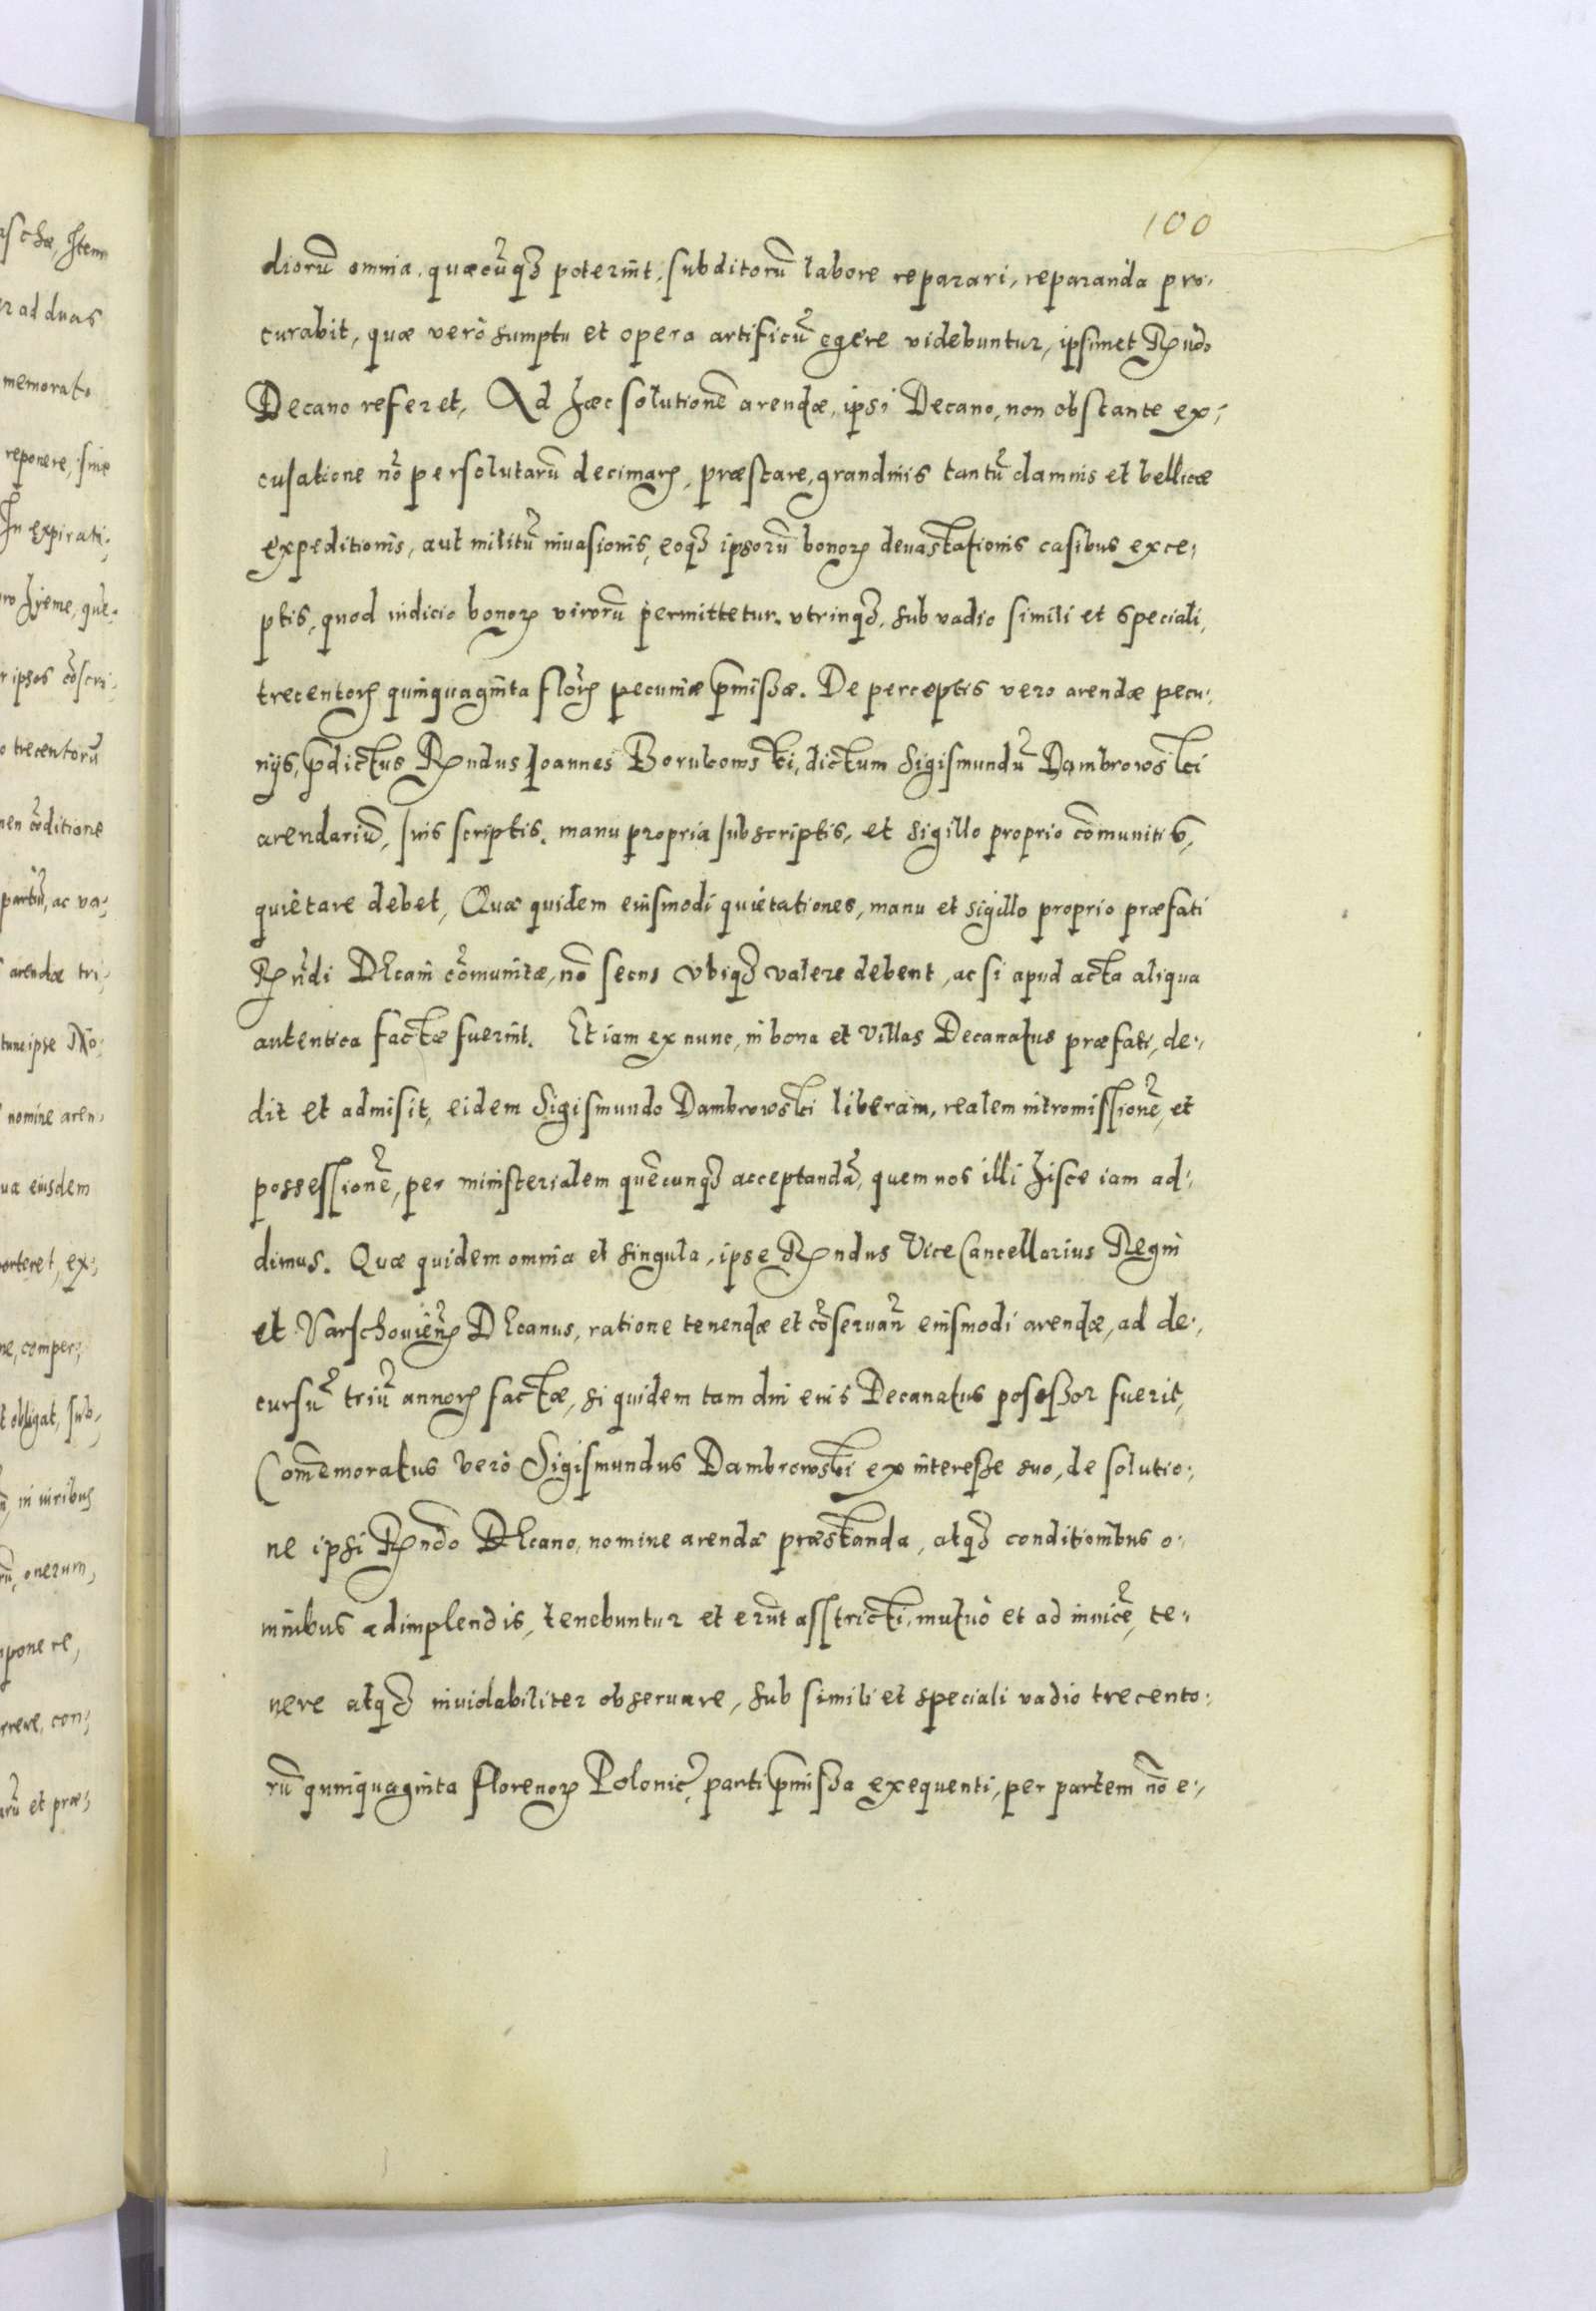 100
diorū omnia, quæcūqȝ poterint, subditorū labore reparari, reparanda pro-
curabit, quæ verò sumptu et opera artificū egere videbuntur, ipsimet Rńdo
Decano referet, Ad hæc solutionē arendæ, ipsi Decano, non obstante ex-
cusatione nō persolutarū decimarꝝ, præstare, grandinis tantū damnis et bellicæ
expeditionis, aut militū inuasionis, eoqȝ ipsorū bonorꝝ deuastationis casibus exce-
ptis, quod iudicio bonorꝝ virorū permittetur, vtrinqȝ, sub vadio simili et speciali,
trecentorꝝ quinquaginta florꝝ pecuniæ p̄missæ. De perceptis vero arendæ pecu-
nijs, p̄dictus Rndus Joannes Borukowski, dictum Sigismundū Dambrowski
arendariū, suis scriptis, manu propria subscriptis, et sigillo proprio cōmunitis,
quietare debet, Quæ quidem eiusmodi quietationes, manu et sigillo proprio præfati
Rńdi Decani cōmunitæ, nō secus vbiqȝ valere debent, ac si apud acta aliqua
autentica factæ fuerint. Et iam ex nunc, in bona et villas Decanatus præfati, de-
dit et admisit, eidem Sigismundo Dambrowski liberam, realem intromissionē, et
possessionē, per ministerialem quēcunqȝ acceptandā, quem nos illi hisce iam ad-
dimus. Quæ quidem omnia et singula, ipse Rndus ViceCancellarius Regni
et Varschovieñ Decanus, ratione tenendæ et cōseruañ eiusmodi arendæ, ad de-
cursū triū annorꝝ factæ, si quidem tam diu eius Decanatus posessor fuerit,
Com̄emoratus verò Sigismundus Dambrowski ex interesse suo, de solutio-
ne ipsi Rndo Decano, nomine arendæ præstanda, atqȝ conditionibus o-
mnibus adimplendis, tenebuntur et erūt asstricti, mutuò et ad inuicē, te-
nere atqȝ inuiolabiliter obseruare, sub simili et speciali vadio trecento-
rū quinquaginta florenorꝝ Polonic̃, parti p̄missa exequenti, per partem nō e-